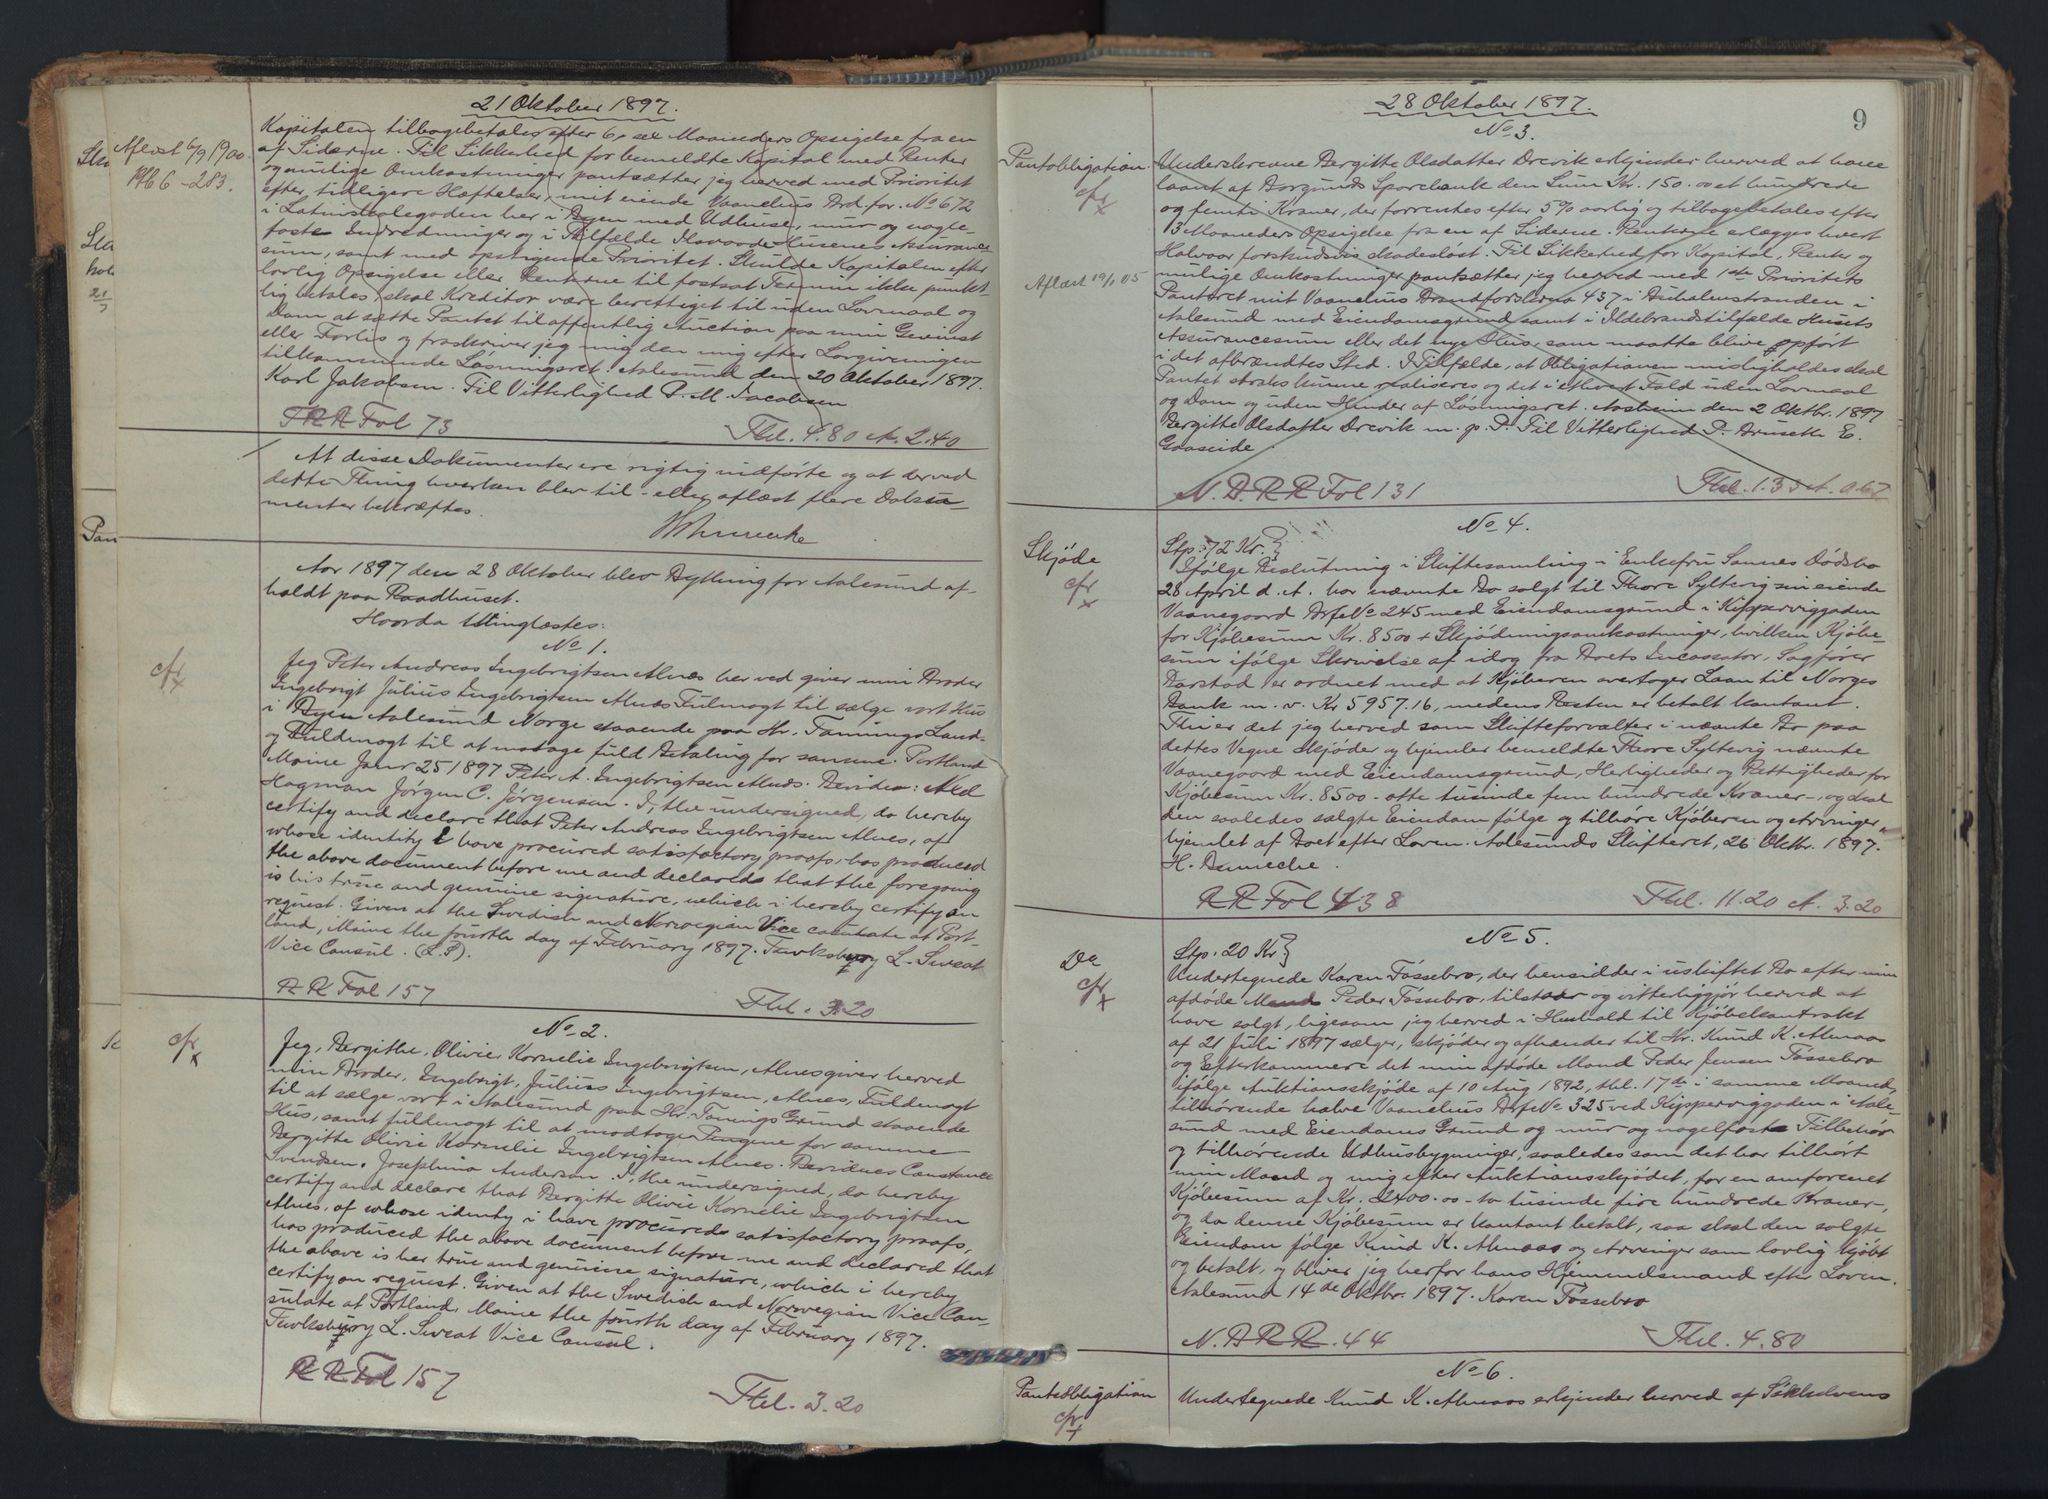 21 Oktober 1897.
Aflæst 6/9 1900.
Pb 6 - 283.
Kapitalen tilbagebetales efter 6, sex Maaneders Opsigelse fra en
af Siderne. Til Sikkerhed for bemeldte Kapital med Renter
og mulige Omkostninger pantsætter jeg herved med Prioritet
efter tidligere Hæftelser, mit eiende Vaanehus Brd. for. No 672
i Latinskolegaden her i Byen med Udhuse, mur og nagle-
faste Indredninger og i Tilfælde Ildsvaade Husenes Assurance
sum, samt med opstigende Prioritet. Skulde Kapitalen efter
lovlig Opsigelse eller Renterne til fastsat Termin ikke punkt-
lig betales, skal Kreditor være berettiget til uden Lovmaal og
Dom at sætte Pantet til offentlig Auction paa min Gevinst
eller Forlis og fraskriver jeg mig den mig efter Lovgivningen
tilkommende Løsningsret. Aalesund den 20 Oktober 1897.
Karl Jakobsen. Til Vitterlighed P. M. Jacobsen
Fol 73 Thl. 4.80 A. 2.40
At disse Dokumenter ere rigtig indførte og at derved
dette Thing hverken blev til- eller aflæst flere Doku-
menter bekræftes.
Aar 1897 den 28 Oktober blev Bything for Aalesund af-
holdt paa Raadhuset.
Hvorda thinglæstes:
No 1.
cfr
x
Jeg Peter Andreas Ingebrigtsen Alnes her ved giver min Broder
Ingebrigt Julius Ingebrigtsen Alnes Fulmagt til sælge vort Hus
i Byen Aalesund Norge staaende paa Hr. Tannings Land-
og Fuldmagt til at modage fuld Betaling for samme. Portland
Maine Janr 25 1897 Peter A. Ingebrigtsen Alnes. Bevidne: Ned
Hagman Jørgen C. Jørgensen. I, the undersigned, do hereby
certify and declare that Peter Andreas Ingebrigtsen Alnes, of
whose identity I have procured satisfactory proofs, has produced
the above document before me and declared that the foregoing
is his true and genuine signature, which i hereby certify on
request. Given at the Swedish and Norwegian Vice consulate at Port-
land, Maine the fourth day of February 1897. Tewksbury L. Sweat
Vice Consul. (L.S).
Fol 157 Thl. 3.20
No 2.
cfr
x
Jeg, Bergithe, Olivie, Kornelie Ingebrigtsen, Alnes giver herved
min Broder, Ingebrigt, Julius Ingebrigtsen, Alnes, Fuldmagt
til at sælge vort i Aalesund paa Hr. Tannings Grund staaende
Hus, samt fuldmagt til at modtage Pengene for samme
Bergitte Olivie Kornelie Ingebrigtsen Alnes. Bevidnes Constance
Svendsen. Josephina Anderson. I, the undersigned, do hereby
certify and declare that Bergitte Olivie Kornelie Ingebrigtsen
Alnes, of whose identy i have procured satisfactory proofs,
has produced the above document before me and declared that
the above is her true and genuine signature, which i hereby
certify on request. Given at the Swedish and Norwegian Vice Con-
sulate at Portland, Maine the fourth day of February 1897.
Tewksbury L. Sweat Vice Consul.
Fol 157 Thl. 3.20
28 Oktober 1897.
9
No 3.
Pantobligation
cfr
x
Aflæst 19/1 05
Underskrevne Bergitte Olsdatter Drevik erkjender herved at have
laant af Borgunds Sparebank den Sum Kr. 150.00 et hundrede
og femti Kroner, der forrentes efter 5% aarlig og tilbagebetales efter
3 Maaneders Opsigelse fra en af Siderne. Renterne erlægges hvert
Halvaar forskudsvis skadesløst. Til Sikkerhed for Kapital, Renter og
mulige Omkostninger pantsætter jeg herved med 1ste Prioritets
Panteret mit Vaanehus Brandforsikring 437 i Buholmstranden i
Aalesund med Eiendomsgrund samt i Ildebrandstilfælde Husets
Assurancesum eller det nye Hus, som maatte blive opført
i det afbrændtes Sted. I Tilfælde, at Obligationen misligholdes skal
Pantet straks kunne realiseres og det i ethvert Fald uden Lovmaal
og Dom og uden Hinder af Løsningsret. Aasheim den 2 Oktbr. 1897
Bergitte Olsdatter Drevik m. p. P. Til Vitterlighed P. Bruseth E.
Gaaseide.
N. B R R Fol 131 Thl. 1.35 A. 0.67
No 4.
Skjøde
cfr
x
Stp: 72 Kr.
Ifølge Beslutning i Skiftesamling i Enkefru Sannes Dødsbo
28 April d. A. har nævnte Bo solgt til Thore Syltevig sin eiende
Vaanegaard Brfc No 245 med Eiendomsgrund i Kipperviggaden
for Kjøbesum Kr. 8500 + Skjødningsomkostninger, hvilken Kjøbe-
sum ifølge Skrivelse af idag fra Boets Incassator, Sagfører
Barstad er ordnet med at Kjøberen overtager Laan til Norges
Bank m. v. Kr 5957.16, medens Resten er betalt kontant.
Thi er det jeg herved som Skifteforvalter i nævnte Bo paa
dettes Vegne skjøder og hjemler bemeldte Thore Syltevig nævnte
Vaanegaard med Eiendomsgrund, Herligheder og Rettigheder for
Kjøbesum Kr. 8500 - otte tusinde fem hundrede Kroner -, og skal
den saaledes solgte Eiendom følge og tilhøre Kjøberen og Arvinger
hjemlet af Boet efter Loven. Aalesunds Skifteret, 26 Oktbr. 1897.
H. Benneche.
R R Fol 438 Thl. 11.20 A. 3.20
No 5.
Do
cfr
x
Stp. 20 Kr
Undertegnede Karen Fossebro, der hensidder i uskiftet Bo efter min
afdøde Mand Peder Fossebro, tilstaar og vitterliggjør herved at
have solgt, ligesom jeg herved i Henhold til Kjøbekontrakt
af 21 Juli 1897 sælger, skjøder og afhænder til Hr. Knud K. Almaas
og Efterkommere det min afdøde Mand Peder Jensen Fossebro
ifølge Auktionsskjøde af 10 Aug 1892, thl. 17de i samme Maaned,
tilhørende halve Vaanehus Brfc No 325 ved Kipperviggaden i Aale-
sund med Eiendoms Grund og mur og nagelfaste Tilbehør
og tilhørende Udhusbygninger, saaledes som det har tilhørt
min Mand og mig efter Auktionsskjødet, for en omforenet
Kjøbesum af Kr. 2400.00 - to tusinde fire hundrede Kroner -,
og da denne Kjøbesum er kontant betalt, saa skal den solgte
Eiendom følge Knud K. Almaas og Arvinger som lovlig kjøbt
og betalt, og bliver jeg herfor hans Hjemmelsmand efter Loven.
Aalesund 14de Oktbr. 1897. Karen Fossebro
N. B R R. 44 Thl. 4.80
No 6.
Pantobligation
cfr
x
Undertegnede Knud K. Almaas erkjender herved af